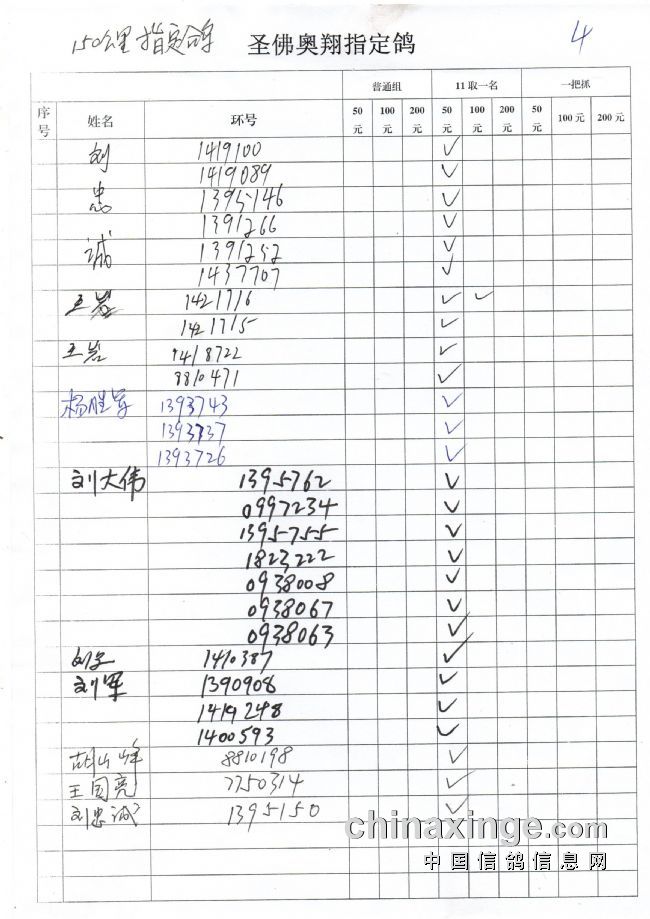 150公里指定鸽 圣佛奥翔指定鸽 4
普通组 11取一名 一把抓
序号 姓名 环号 50元 100元 200元 50元 100元 200元 50元 100元 200元
刘 1419100 ✓
1419089 ✓
忠 1395146 ✓
1391266 ✓
诚 1391252 ✓
1437707 ✓
王岩 1421716 ✓ ✓
1421715 ✓
王岩 1418722 ✓
8810471 ✓
杨胜军 1393743 ✓
1393737 ✓
1393726 ✓
刘大伟 1395762 ✓
0997234 ✓
1395755 ✓
1823222 ✓
0938008 ✓
0938067 ✓
0938063 ✓
刘 1410387 ✓
刘军 1390908 ✓
1419248 ✓
1400593 ✓
胡山峰 8810198 ✓
王国亮 7750314 ✓
刘忠诚 1395150 ✓
chinaxinge.com
中国信鸽信息网